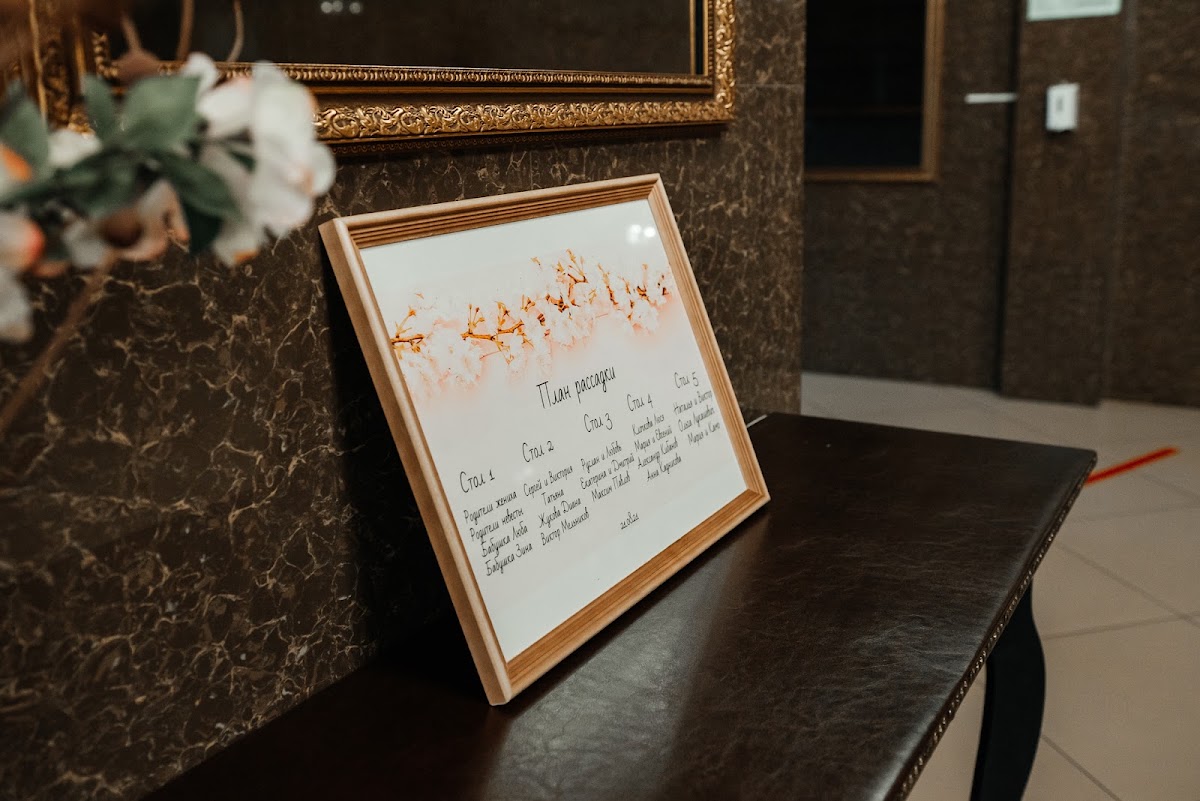 План рассадки
Стол 1
Родители жениха
Родители невесты
Бабушка Люба
Бабушка Зина
Стол 2
Сергей и Виктория
Татьяна
Жукова Диана
Виктор Мельников
Стол 3
Руслан и Любовь
Екатерина и Дмитрий
Максим Павлов
Стол 4
Леся
Мария и Евгений
Александр
Анна
Стол 5
Наталья и Виктор
Ольга
Мария и
21.08.21